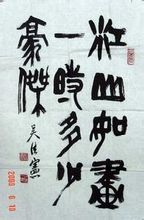 江山如畫
一時多少
豪傑
2008 6 10